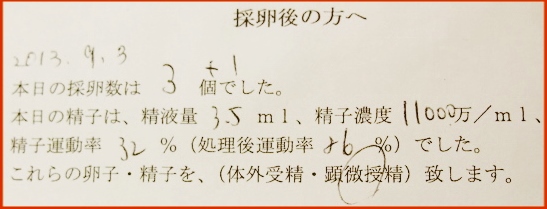 採卵後の方へ
2013. 9. 3
本日の採卵数は 3 +1 個でした。
本日の精子は、精液量 3.5 ml、精子濃度 11000万/ml、
精子運動率 32 %(処理後運動率 86 %)でした。
これらの卵子・精子を、(体外受精・顕微授精)致します。